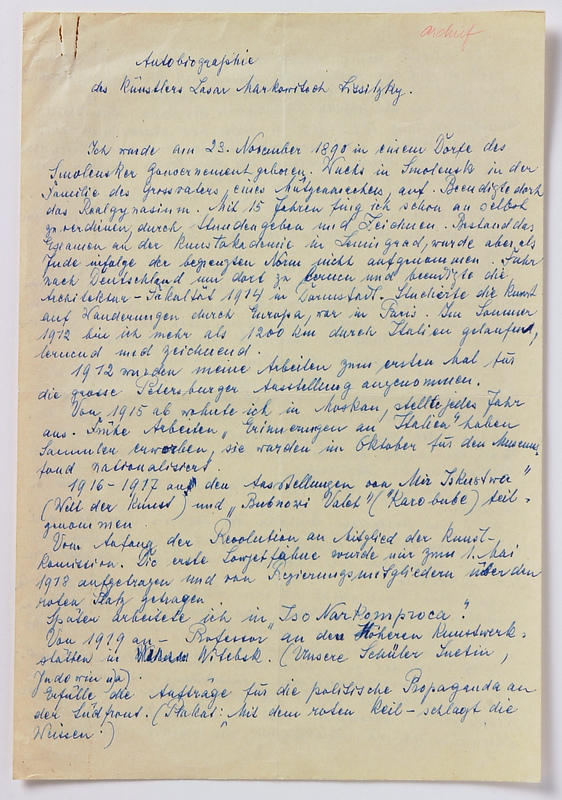 archief
Autobiographie
des Künstlers Lasar Markowitsch Lissitzky.
Ich wurde am 23. November 1890 in einem Dorfe des
Smolensker Gouvernement geboren. Wuchs in Smolensk in der
Familie des Grossvaters, eines Mützenmachers, auf. Beendigte dort
das Realgynasium. Mit 15 Jahren fing ich schon an selbst
zu verdienen, durch Stundengeben und Zeichnen. Bestand das
Examen an der Kunstakademie in Leningrad, wurde aber als
Jude infolge der begrenzten Norm nicht aufgenommen. Fuhr
nach Deutschland um dort zu lernen und beendigte die
Architektur-Fakultät 1914 in Darmstadt. Studierte die Kunst
auf Wanderungen durch Europa, war in Paris. Im Sommer
1912 bin ich mehr als 1200 km durch Italien gelaufen,
lernend und zeichnend.
1912 wurden meine Arbeiten zum ersten Mal für
die grosse Petersburger Ausstellung angenommen.
Von 1915 ab wohnte ich in Moskau, stellte jedes Jahr
aus. Frühe Arbeiten „Erinnerungen an Italien" haben
Sammler erworben, sie wurden im Oktober für den Museums-
fond nationalisiert.
1916-1917 auf den Ausstellungen von „Mir Iskustwa"
(Welt der Kunst) und „Bubnowi Valet" ("Karobube) teil-
genommen.
Vom Anfang der Revolution an Mitglied der Kunst-
komission. Die erste Sowjetfahne wurde mir zum 1. Mai
1918 aufgetragen und von Regierungsmitgliedern über den
roten Platz getragen.
Später arbeitete ich in „Iso Narkomproca".
Von 1919 an - Professor an den Höheren Kunstwerk-
stätten in Witebsk. (Unsere Schüler Suetin,
Judowin ua).
Erfülle die Aufträge für die politische Propaganda an
der Südfront. (Plakat: Mit dem roten Keil - schlagt die
Weissen!)